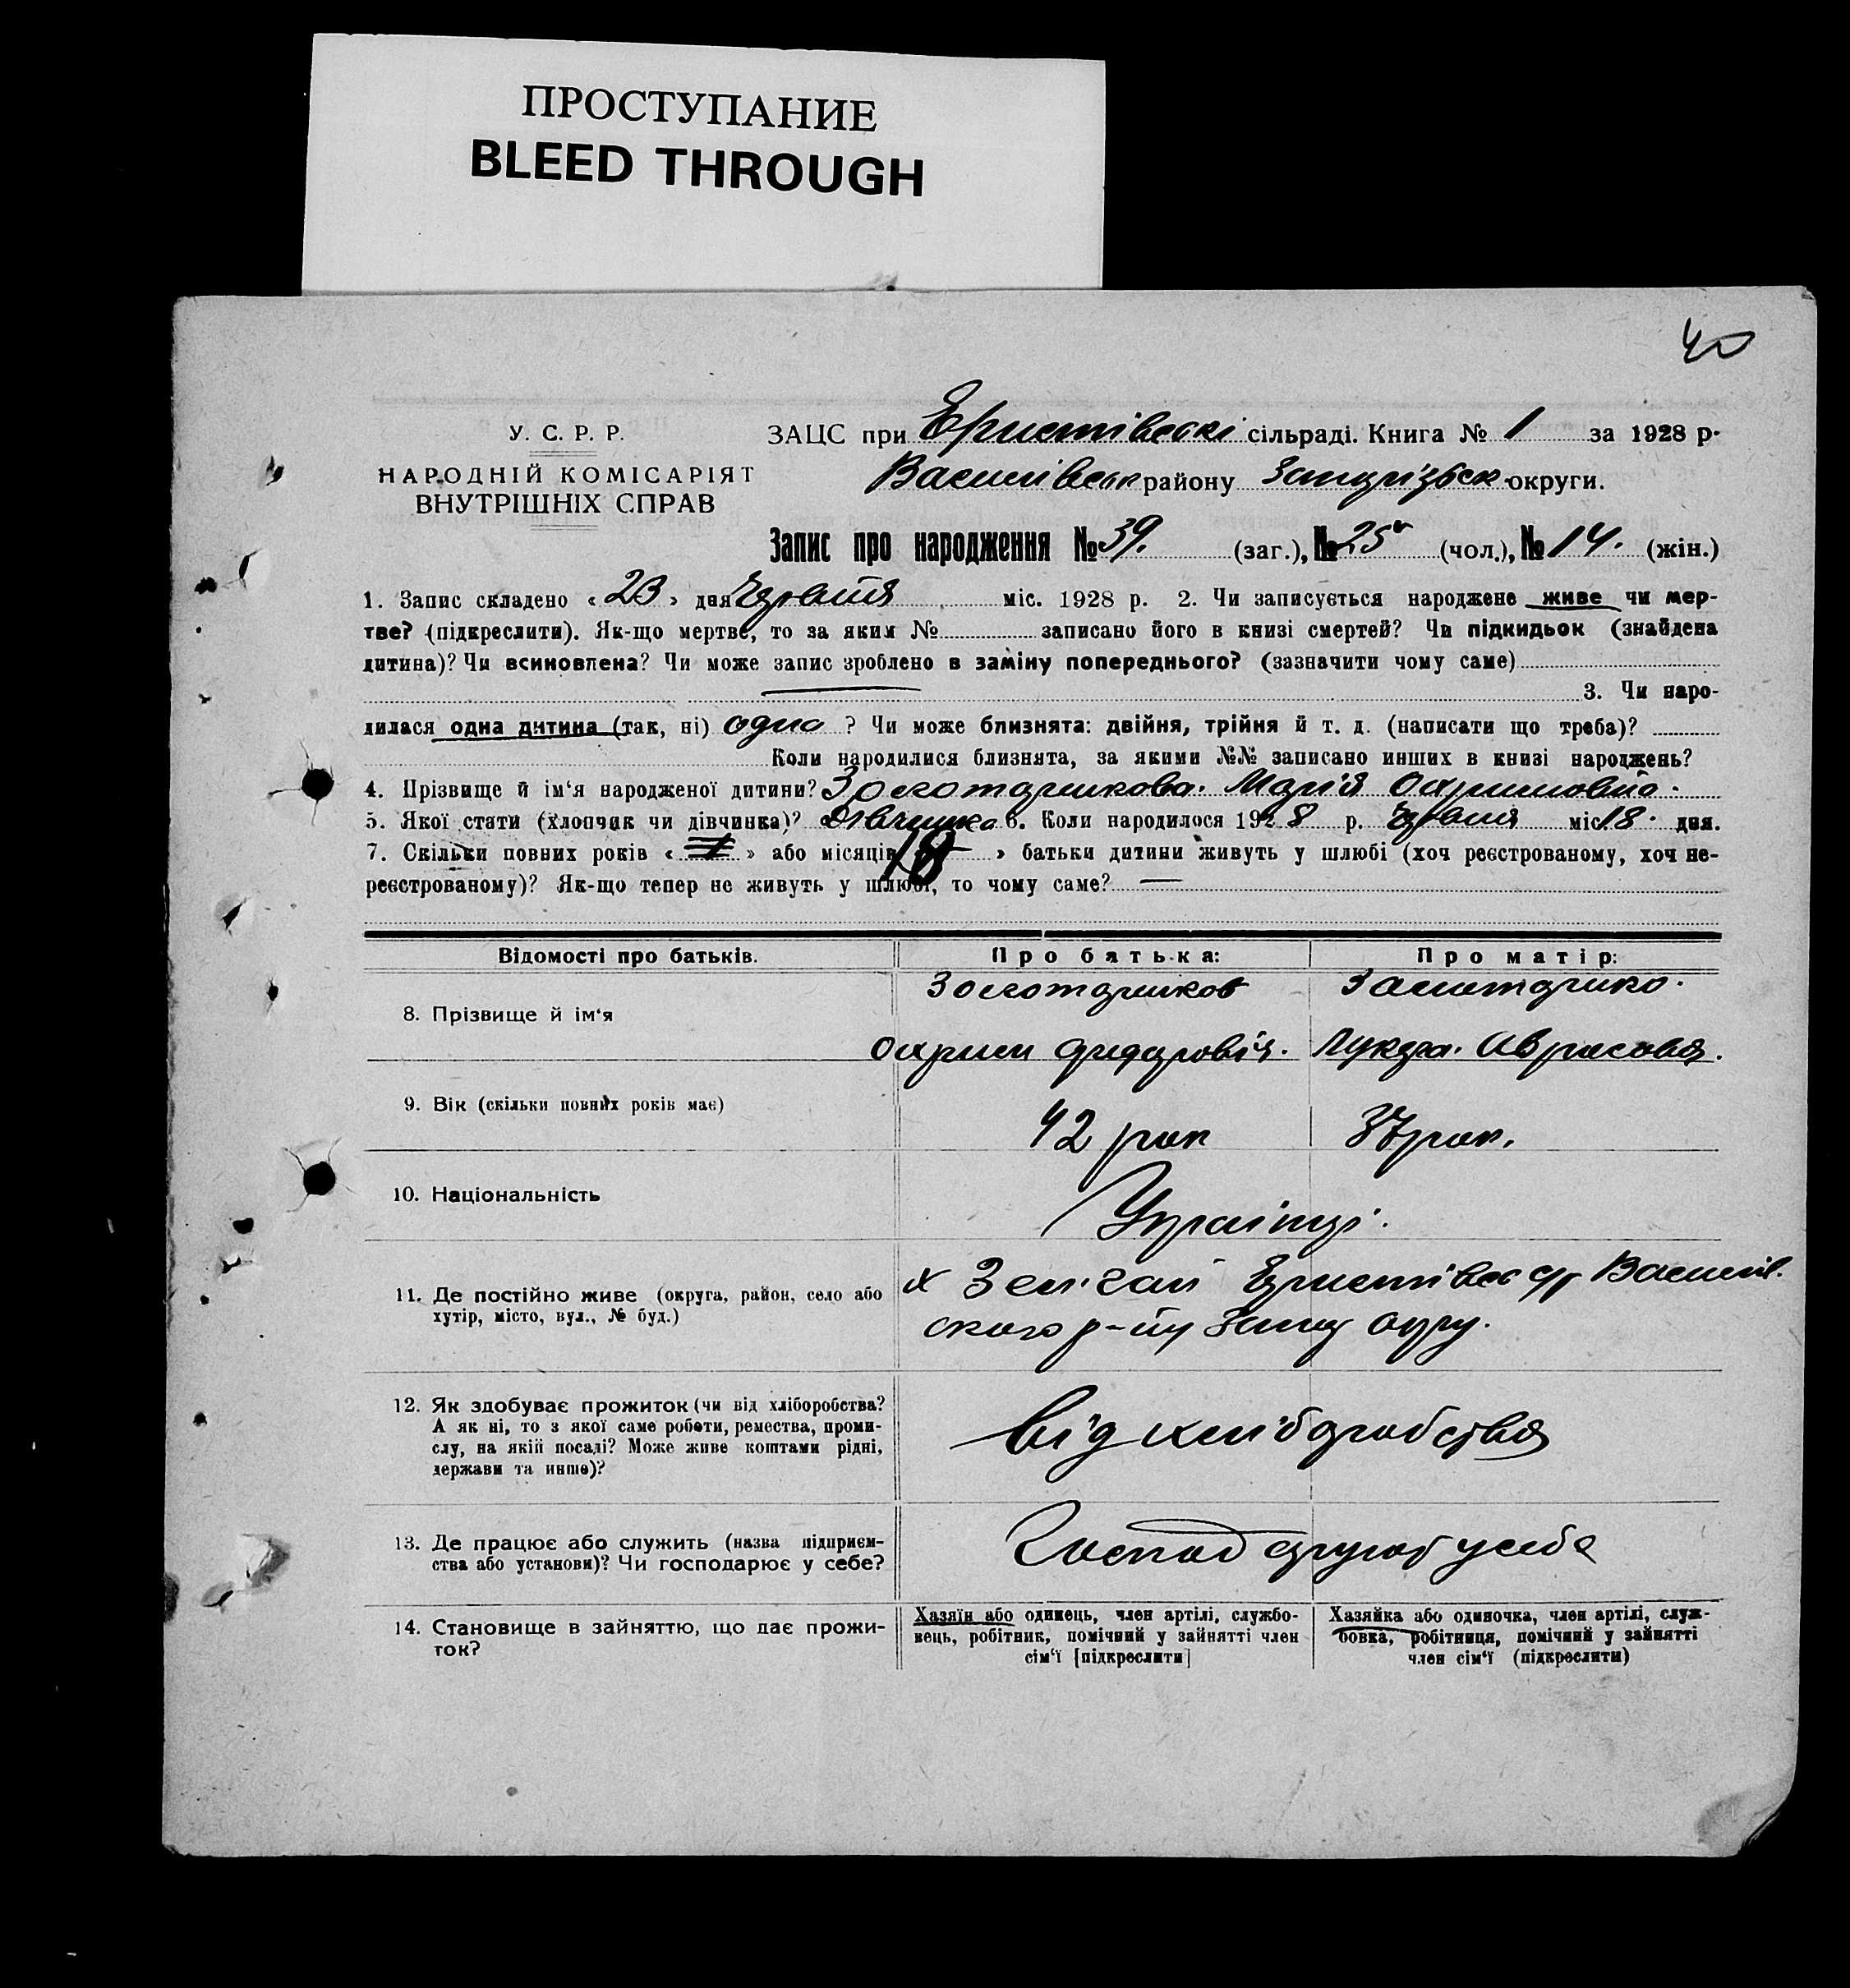 ПРОСТУПАНИЕ
BLEED THROUGH
40
У. С. Р. Р.
НАРОДНІЙ КОМІСАРІЯТ
ВНУТРІШНІХ СПРАВ
ЗАЦС при Еристівські сільраді. Книга № 1 за 1928 р.
Василівськ району Запорізьск округи.
Запис про народження № 39. (заг.), № 25 (чол.), № 14. (жін.)
1. Запис складено « 23 » дня Червня міс. 1928 р. 2. Чи записується народжене живе чи мер-
тве? (підкреслити). Як-що мертве, то за яким № записано його в книзі смертей? Чи підкидьок (знайдена
дитина)? Чи всиновлена? Чи може запис зроблено в заміну попереднього? (зазначити чому саме)
3. Чи наро-
дилася одна дитина (так, ні) одно ? Чи може близнята: двійня, трійня й т. д. (написати що треба)?
Коли народилися близнята, за якими №№ записано инших в книзі народжень?
4. Прізвище й ім'я народженої дитини? Марія
5. Якої статі (хлопчик чи дівчинка)? Дівчинка 6. Коли народилося 1928 р. Червня міс. 18 дня.
7. Скільки повних років « » або місяців 18 » батьки дитини живуть у шлюбі (хоч реєстрованому, хоч не-
реєстрованому)? Як-що тепер не живуть у шлюбі, то чому саме? —
Відомості про батьків.
Про батька:
Про матір:
8. Прізвище й ім'я
9. Вік (скільки повних років має)
42 рок
37 рок.
10. Національність
Українці.
11. Де постійно живе (округа, район, село або
хутір, місто, вул., № буд.)
х Василів.
ского р-ну Запор окру.
12. Як здобуває прожиток (чи від хліборобства?
А як ні, то з якої саме роботи, ремества, проми-
слу, на якій посаді? Може живе коштами рідні,
держави та инше)?
від хліборобства
13. Де працює або служить (назва підприєм-
ства або установи)? Чи господарює у себе?
у себе
14. Становище в зайняттю, що дає прожи-
ток?
Хазяїн або одинець, член артілі, службо-
вець, робітник, помічний у зайнятті член
сім'ї [підкреслити]
Хазяйка або одиночка, член артілі, служ-
бовка, робітниця, помічний у зайнятті
член сім'ї (підкреслити)